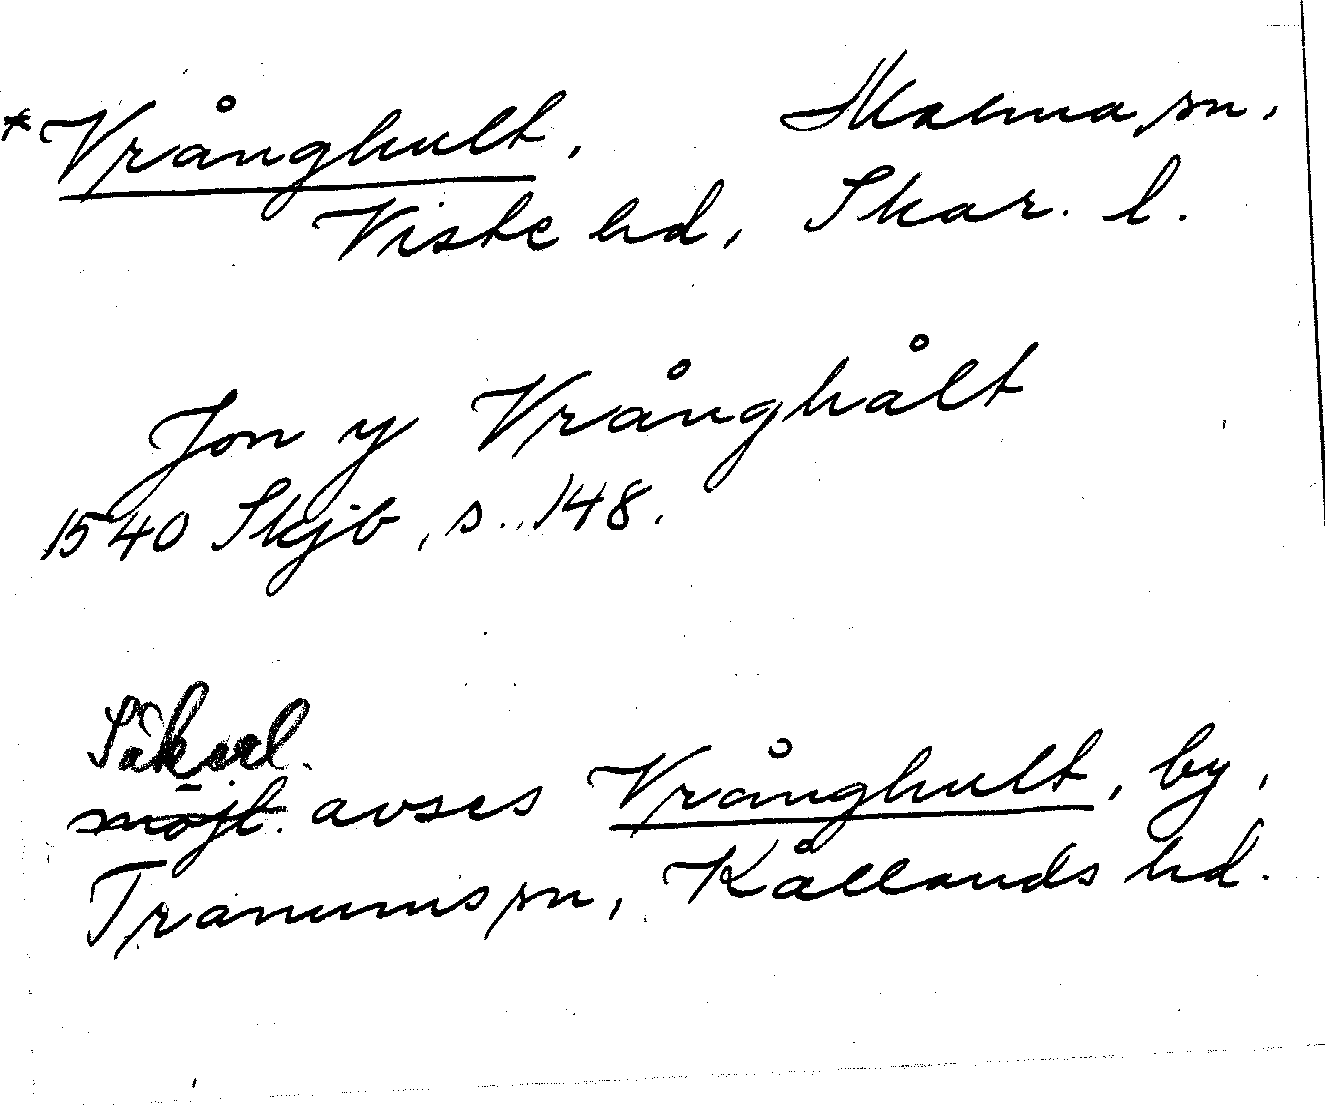 *Vrånghult. Malma sn.
Viste hd, Skar. l.
Jon y Vrånghålt
1540 Skjb, s. 148.
Säkerl.
möjl. avses Vrånghult, by,
Tranums sn, Kållands hd.